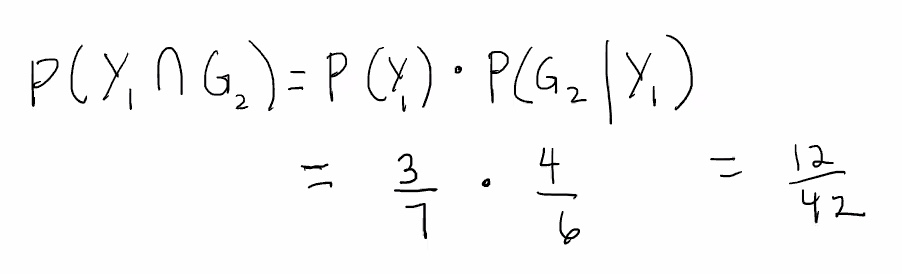 P(Y₁ ∩ G₂) = P(Y₁) · P(G₂ | Y₁)
= 3/7 · 4/6 = 12/42